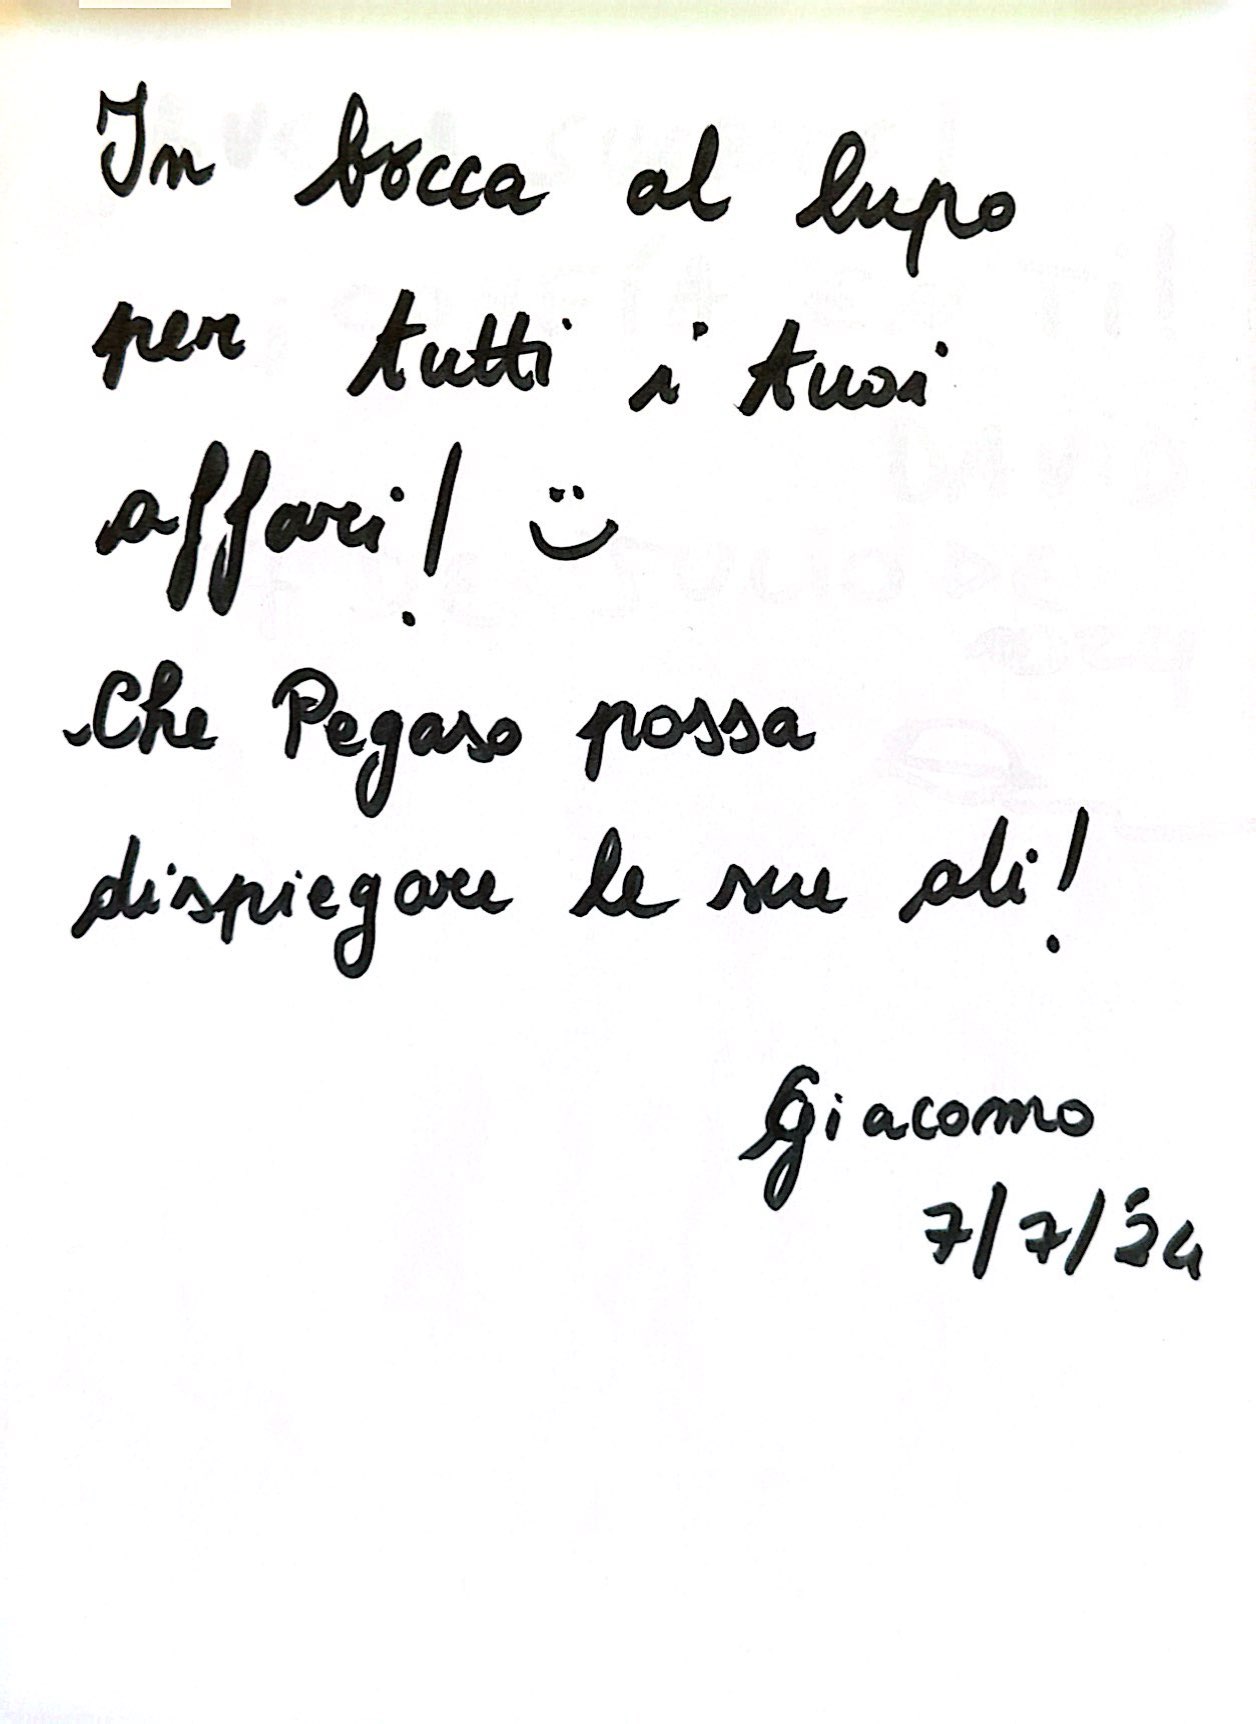 In bocca al lupo
per tutti i tuoi
affari! :)
Che Pegaso possa
dispiegare le sue ali!
Giacomo
7/7/24